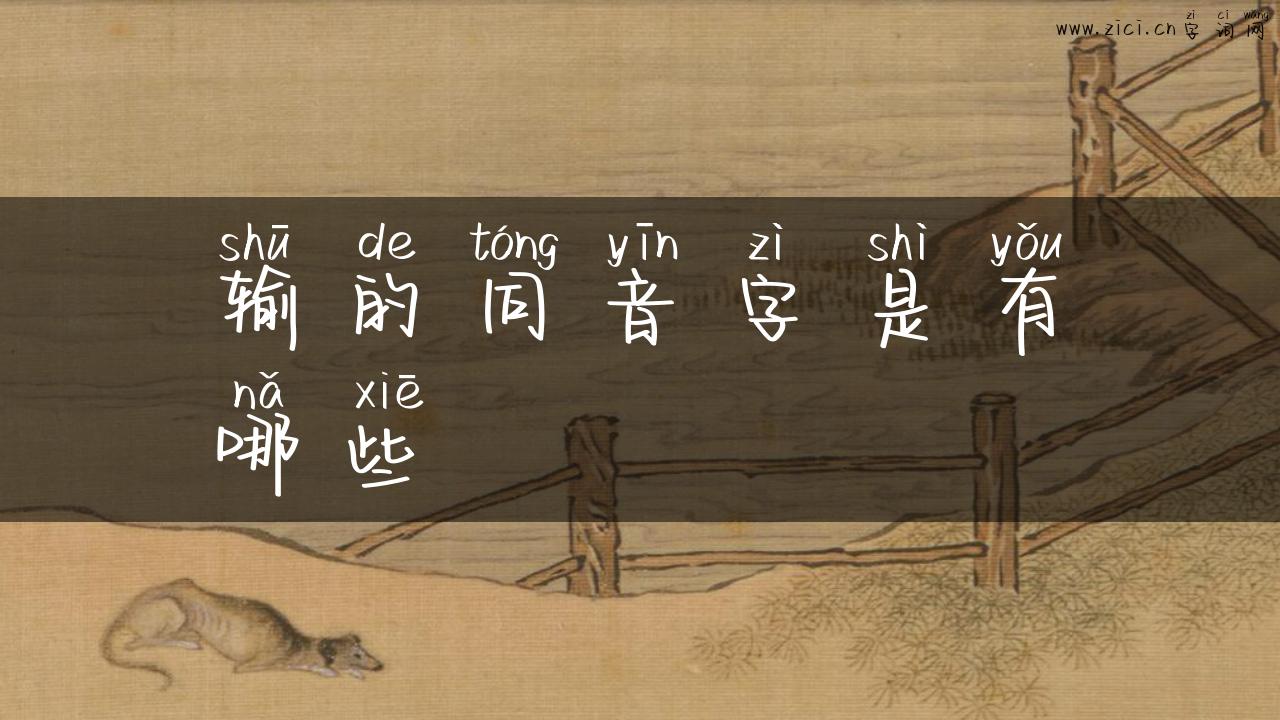 zì cí wǎng
www.zici.cn 字词网
shū de tóng yīn zì shì yǒu
输的同音字是有
nǎ xiē
哪些